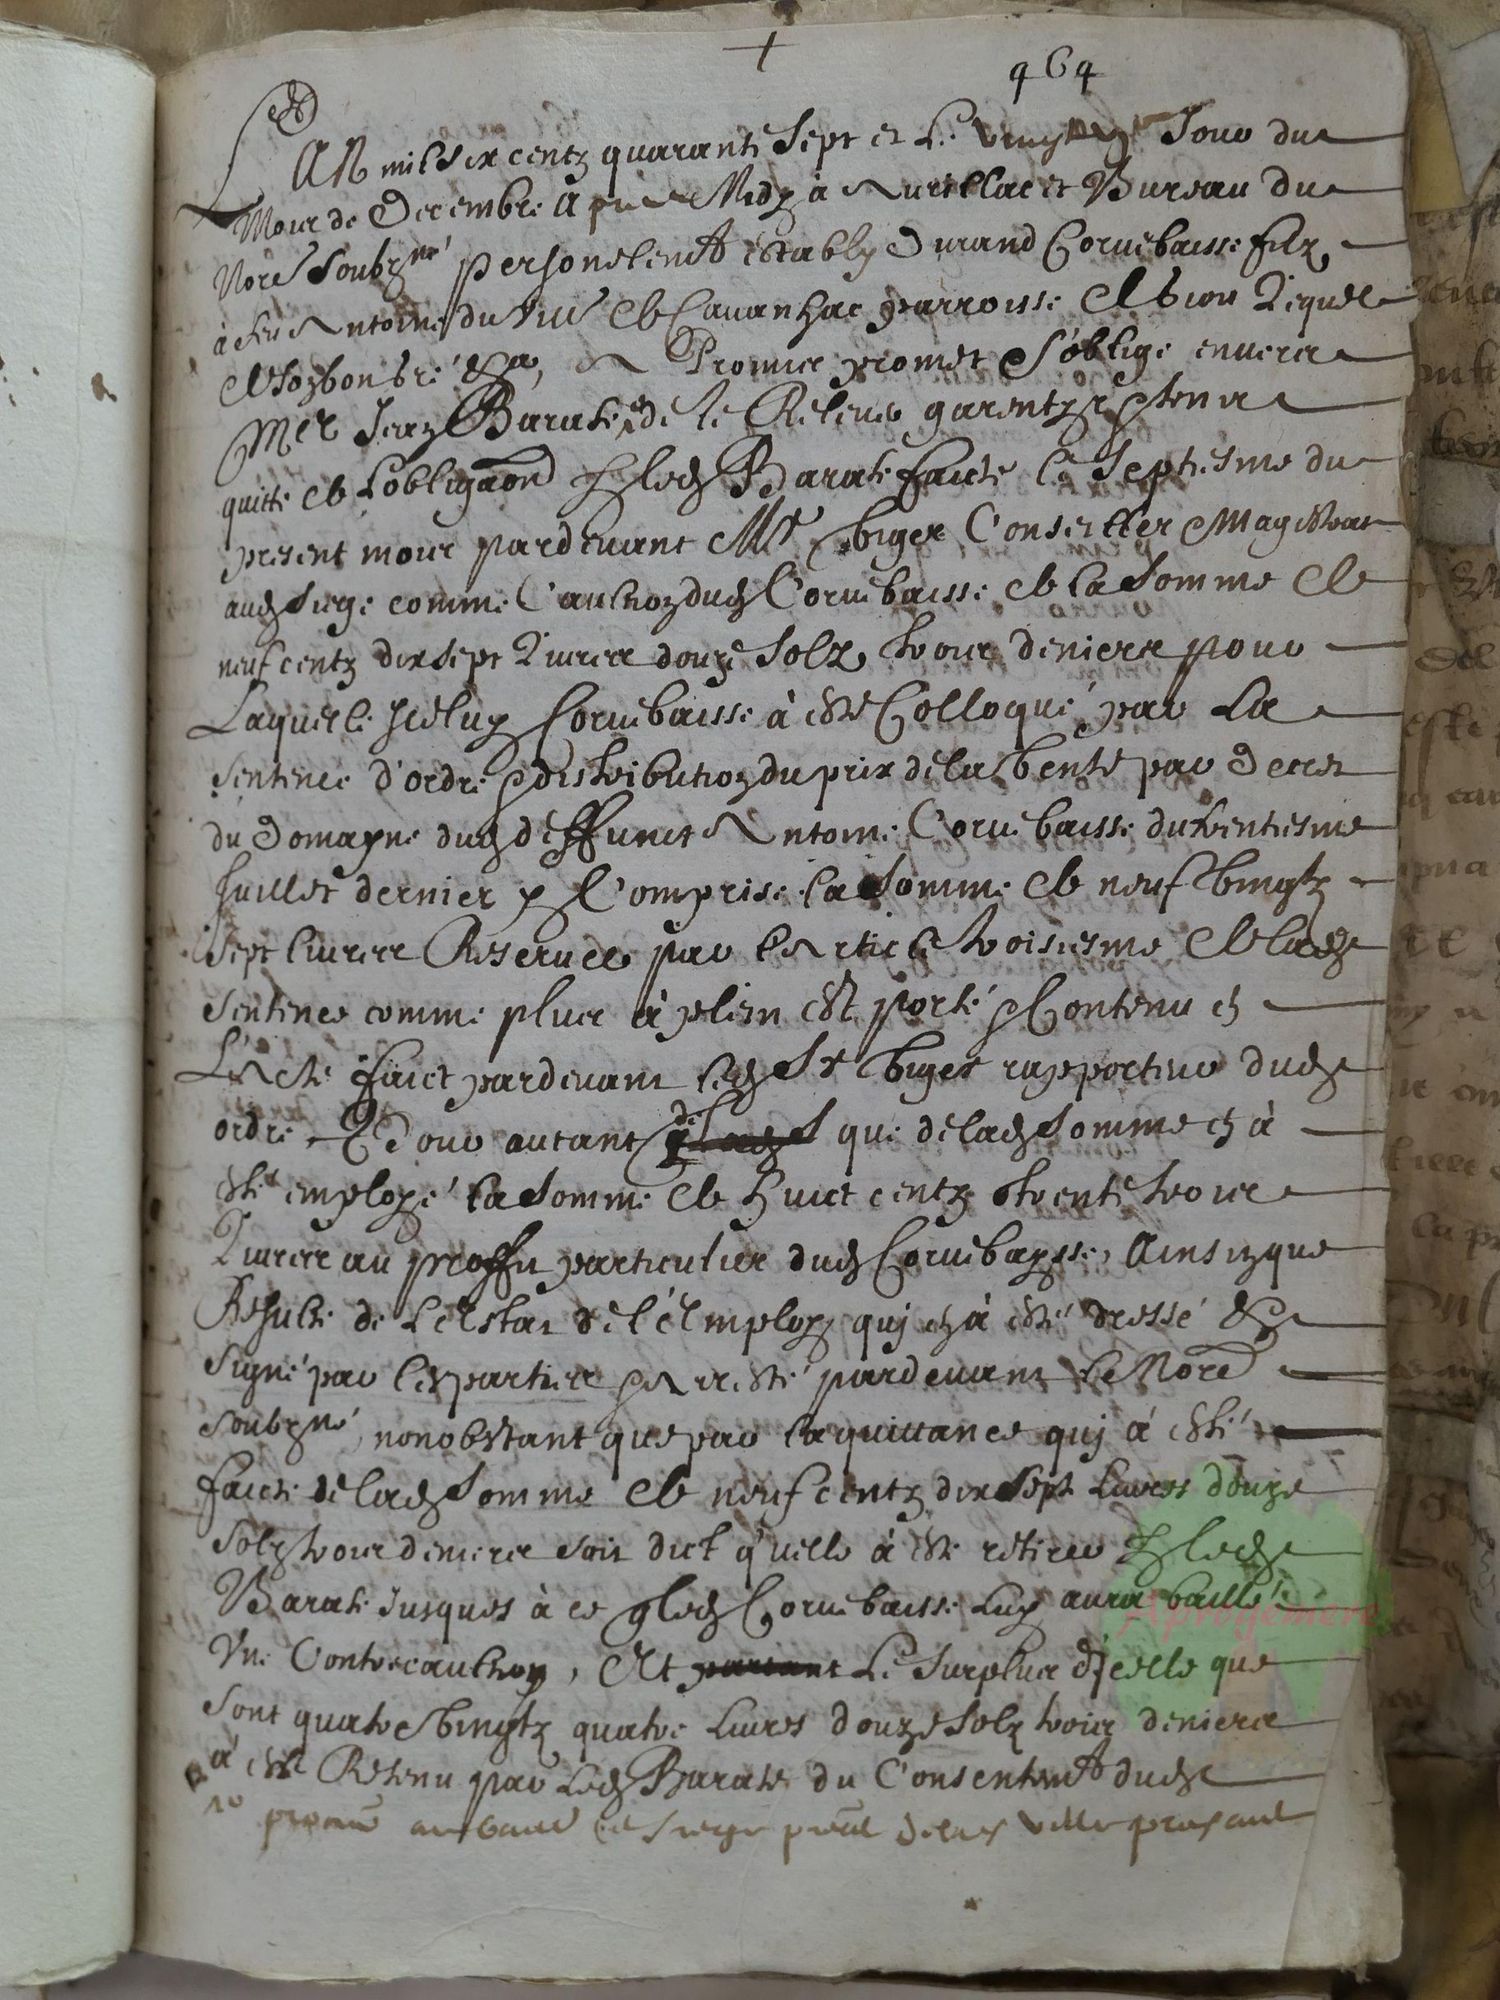 464
L'AN mil six centz quarante sept et le Jour du
Mois de Decembre a Midy à Aurillac et Bureau du
Nore Soubzne personelemt estably Durand Cornebaisse filz
à feu Antoine du de Cauanhac parroisse Lequel
de son bon gré &a, a Promis promet S'oblige enuers
Mre Jean Barate, de le Releuer garentyr & tenir
quitte de Lobligaon p ledt Barate faicte le Septiesme du
present mois pardeuant Mr Viger Conseiller Magistrat
audt siege comme Cauthion dudt Cornebaisse de la Somme de
neuf centz dix sept Liures douze Solz trois deniers pour
Laquelle Icelluy Cornebaisse à esté Colloqué par La
Sentence d'ordre & distribution du prix de la Vente par Decret
du Domayne dudt deffunct Antoine Cornebaisse du trentiesme
Juillet dernier y Comprise la Somme de neuf Vingtz
Sept liures Reseruee par l'Article troisiesme de ladte
Sentence comme plus à plein est porté & Contenu en
L'Acte faict pardeuant ledt Sr Viger rapporteur dudt
ordre Et d'autant de que de ladt Somme en à
esté employé la Somme de huict centz trente trois
Liures au proffit particulier dudt Cornebaysse, Ainsin que
Resulte de L'estat de l'Employ quy en à esté dressé &
Signé par les parties & Arresté pardeuant Le Nore
Soubzné, nonobstant que par la quittance quy à esté
faicte de ladt Somme de neuf centz dix Sept Liures douze
Solz trois deniers soit dict qu'elle à esté retiree p ledt
Barate Jusques à ce q ledt Cornebaisse Luy aura baillé
Vne Contrecauthion, Et partant Le Surplus d'Jcelle que
Sont quatre Vingtz quatre Liures douze Solz trois deniers
à esté Retenu par Ledt Barate du Consentemt dudt